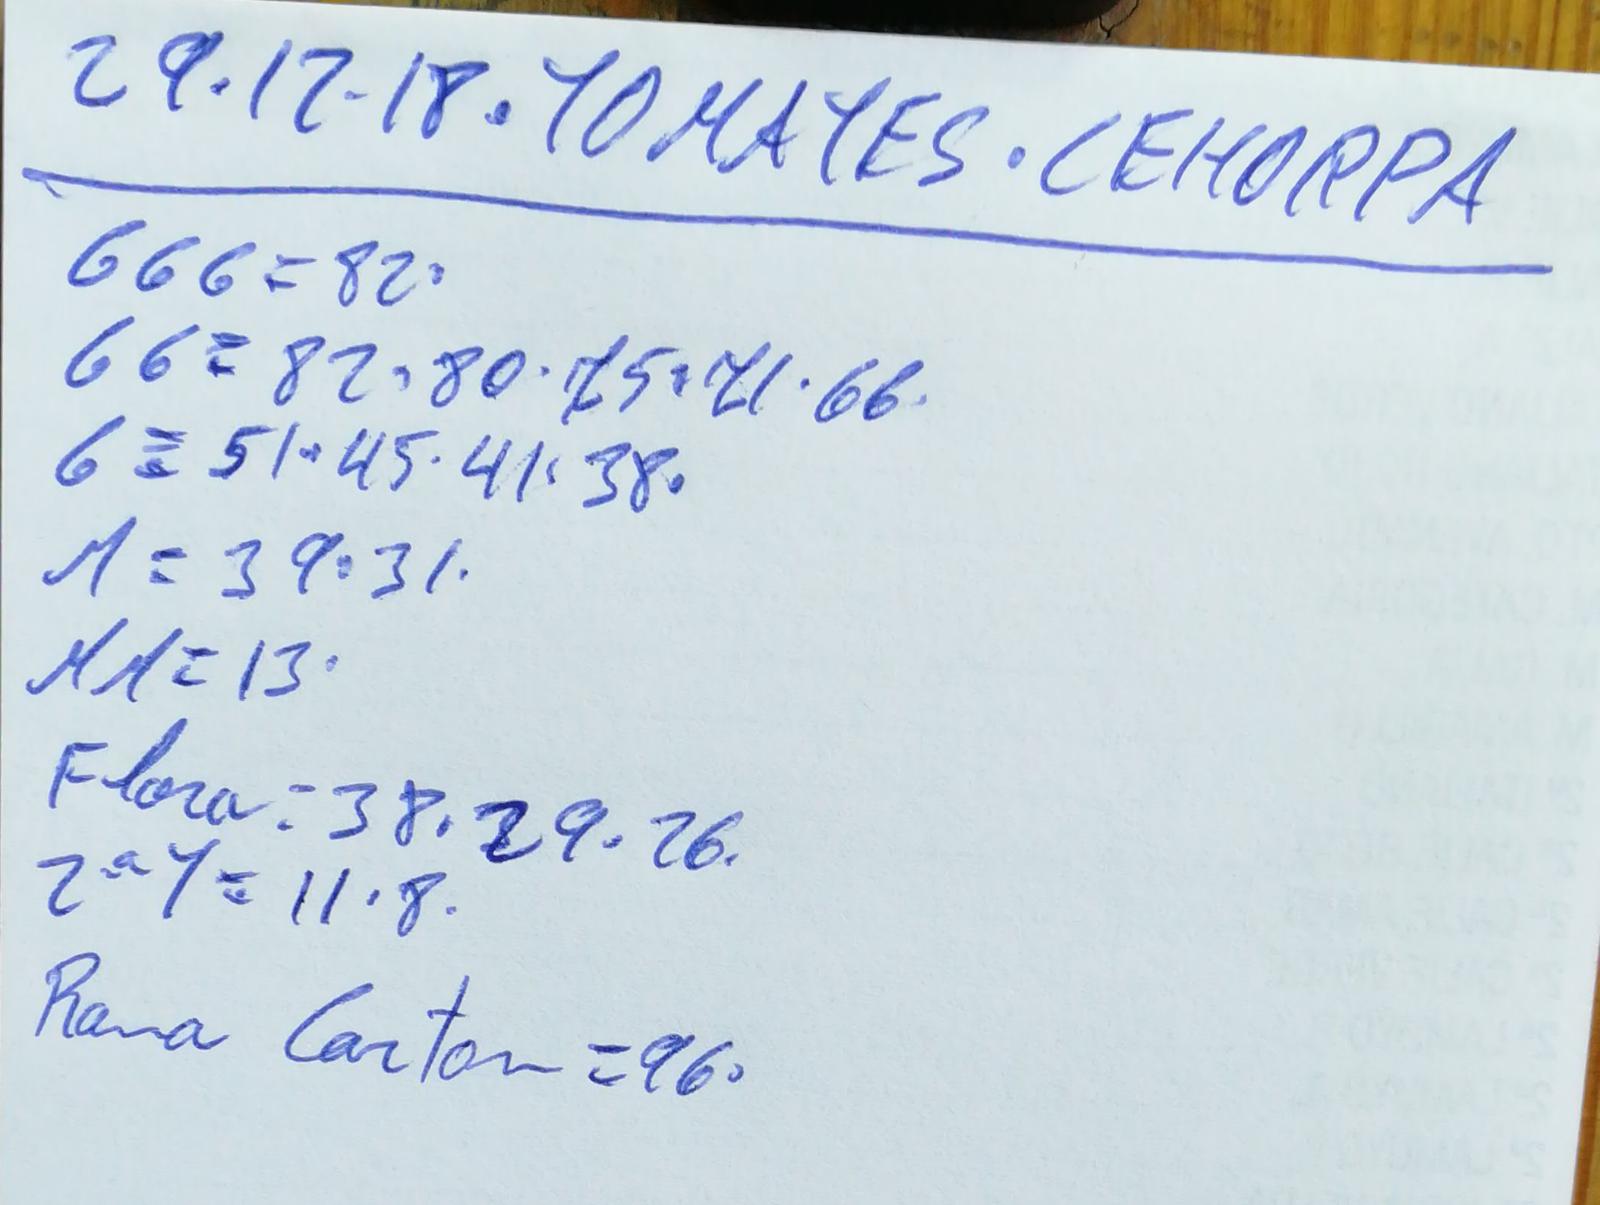 29.12.18. TOMATES. CEHORPA
GGG = 82.
GG = 82. 80. 75. 71. 66.
G = 51. 45. 41. 38.
M = 39. 31.
MM = 13.
Flora = 38. 29. 26.
2ªT = 11. 8.
Rama Carton = 96.